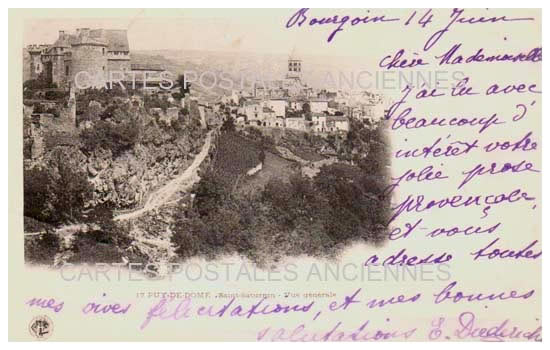 Bourgoin 14 Juin
Chère Mademoiselle
J'ai lu avec
beaucoup d'
intérêt votre
jolie prose
provençale,
et vous
adresse toutes
CARTES POSTALES ANCIENNES
CARTES POSTALES ANCIENNES
17 PUY-DE-DOME. Saint-Saturnin - Vue générale
mes vives félicitations, et mes bonnes
salutations E. Diederich